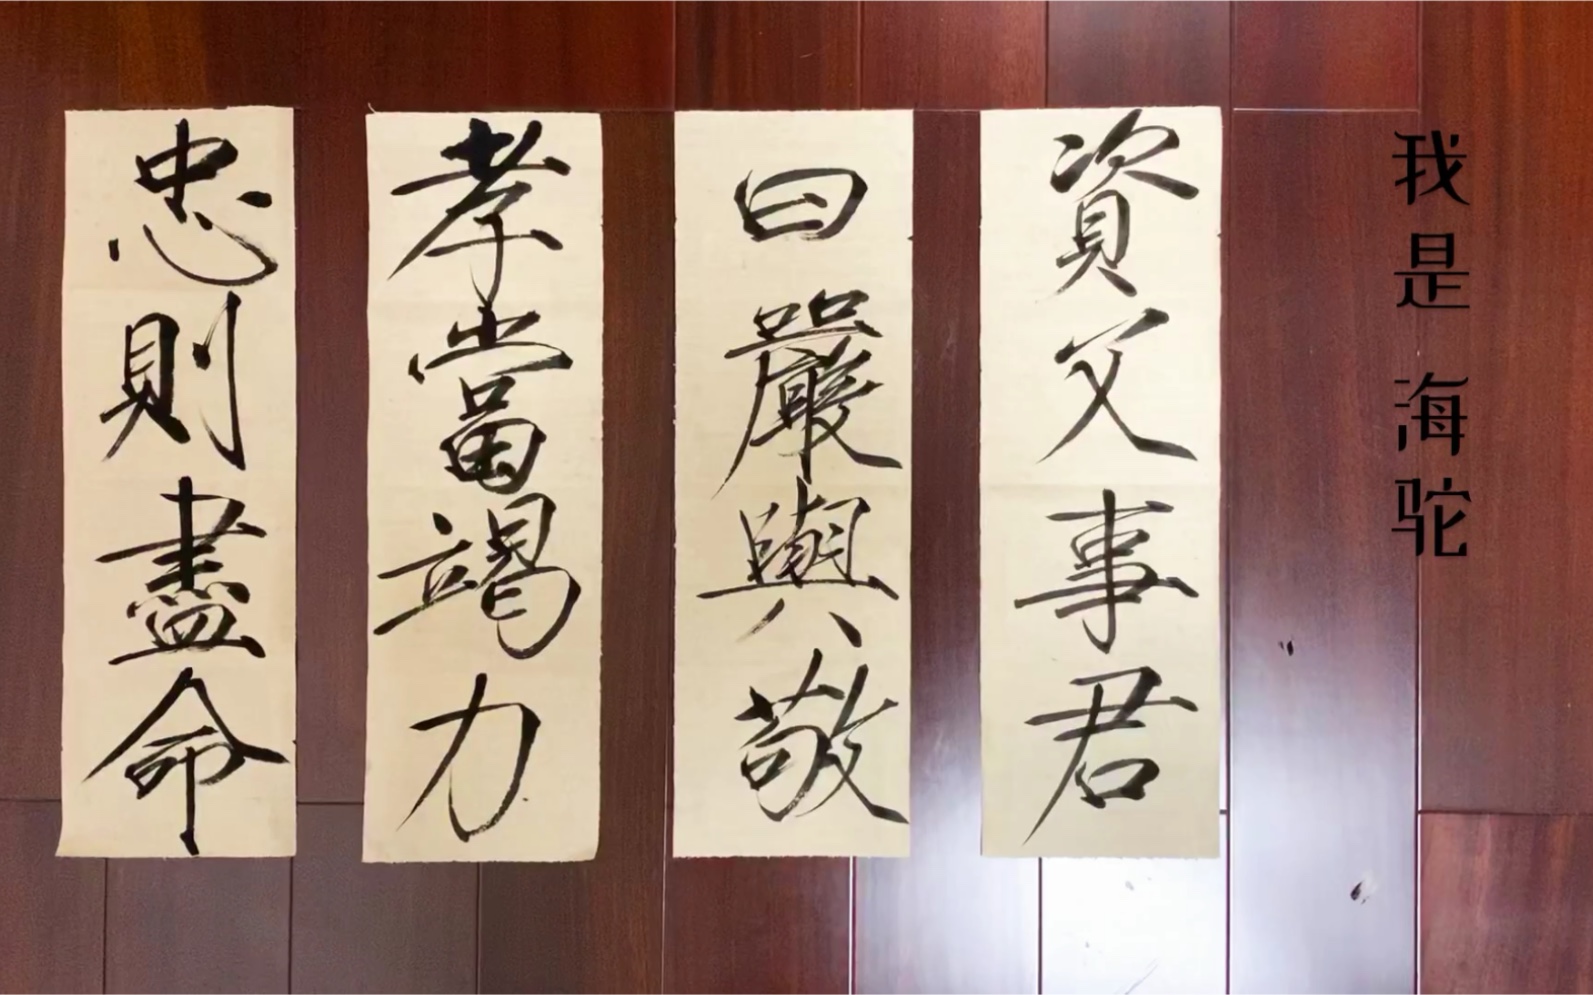 我是 海驼
資父事君
曰嚴與敬
孝當竭力
忠則盡命